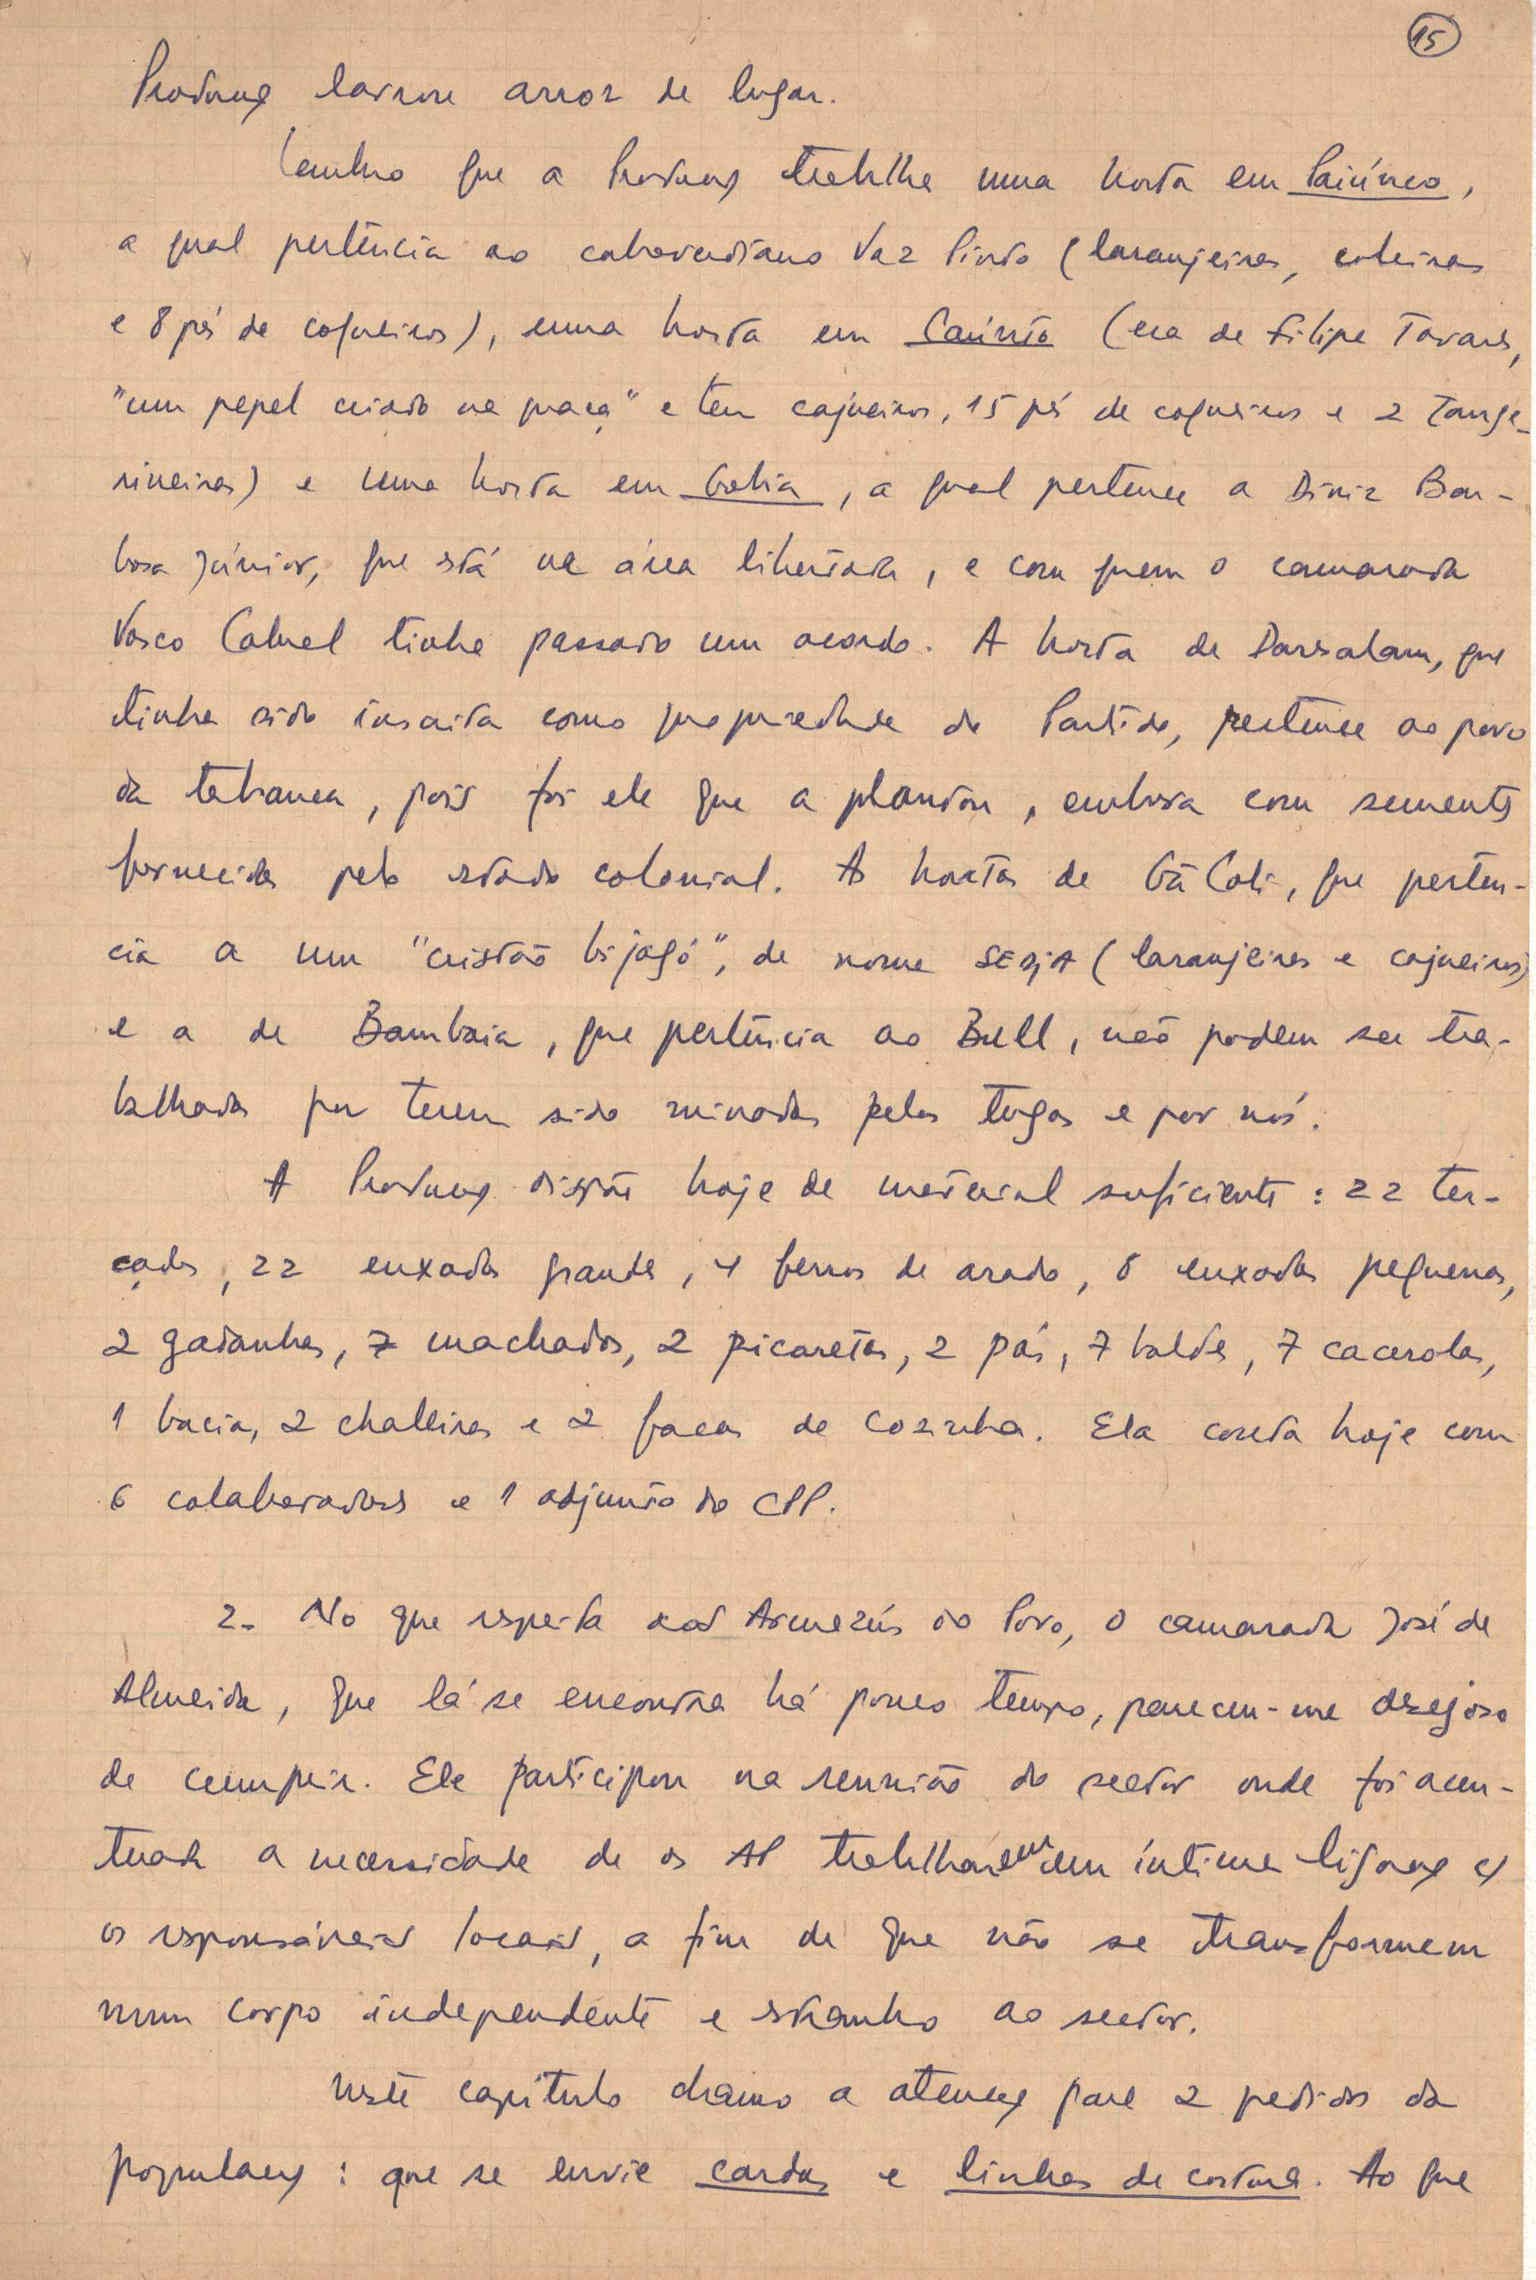 15
Produção lavrou arroz de lugar.
Lembro que a Produção trabalha uma horta em Paiúnco,
a qual pertência ao caboverdiano Vaz Pinto (laranjeiras, coleiras
e 8 pés de coqueiros), uma horta em Caúnto (era de Filipe Tavares,
"um pepel criado na praça" e tem cajueiros, 15 pés de coqueiros e 2 tange-
rineiras) e uma horta em Gobia, a qual pertence a Diniz Bar-
bosa Júnior, que está na área libertada, e com quem o camarada
Vasco Cabral tinha passado um acordo. A horta de Darsalam, que
tinha sido inscrita como propriedade do Partido, pertence ao povo
da tabanca, pois foi ele que a plantou, embora com sementes
fornecidas pelo estado colonial. As hortas de Gã Coli, que perten-
cia a um "cristão bijagó", de nome (laranjeiras e cajueiros)
e a de Bambaia, que pertência ao Bull, não podem ser tra-
balhadas por terem sido minadas pelos tugas e por nós.
A Produção dispõe hoje de material suficiente: 22 ter-
çados, 22 enxadas grandes, 4 ferros de arado, 8 enxadas pequenas,
2 gadanhas, 7 machados, 2 picaretas, 2 pás, 7 baldes, 7 cacerolas,
1 bacia, 2 challeiras e 2 facas de cozinha. Ela conta hoje com
6 colaboradores e 1 adjunto do CPP.
2. No que respeita aos Armazéns do Povo, o camarada José de
Almeida, que lá se encontra há pouco tempo, pareceu-me desejoso
de cumprir. Ele participou na reunião do sector onde foi acen-
tuada a necessidade de os AP trabalharem em íntima ligação c/
os responsáveis locais, a fim de que não se transformem
num corpo independente e estranho ao sector.
Neste capítulo chamo a atenção para 2 pedidos da
população: que se envie cardas e linhas de costura. Ao que